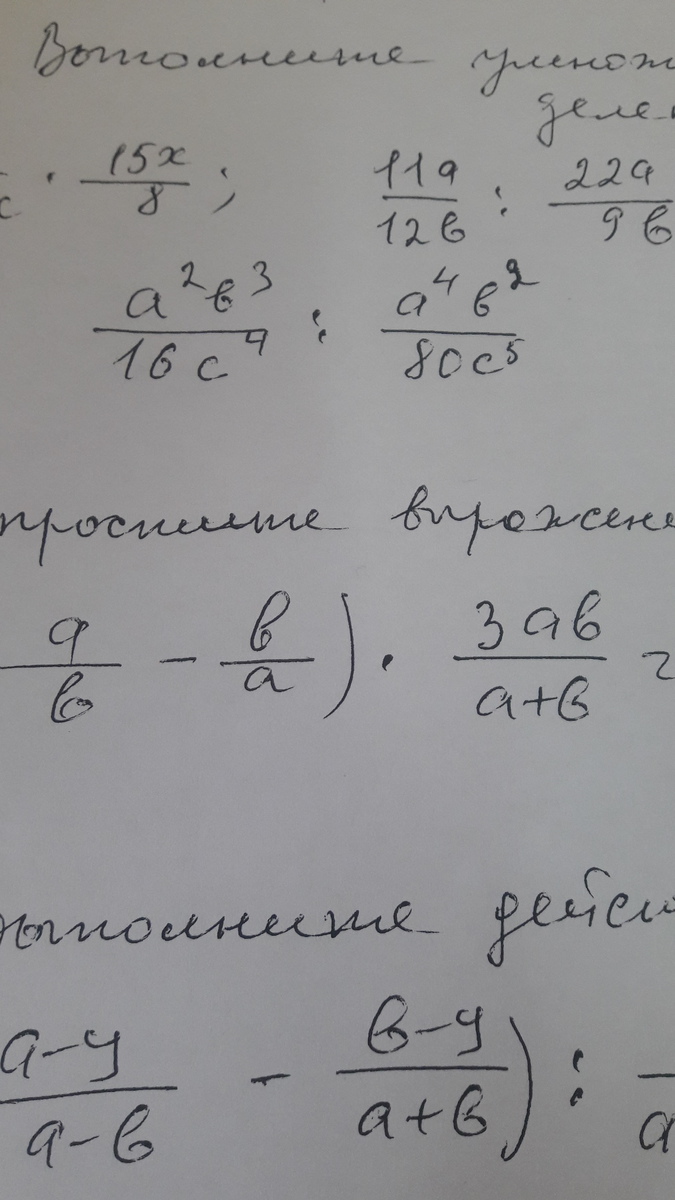 Выполните умнож
деле
с · 15x/8 ; 11a/12b : 22a/9b
a²b³/16c⁴ : a⁴b²/80c⁵
простите выражен
a/b − b/a) · 3ab/a+b
ыполните дейст
a−y/a−b − b−y/a+b) : /a